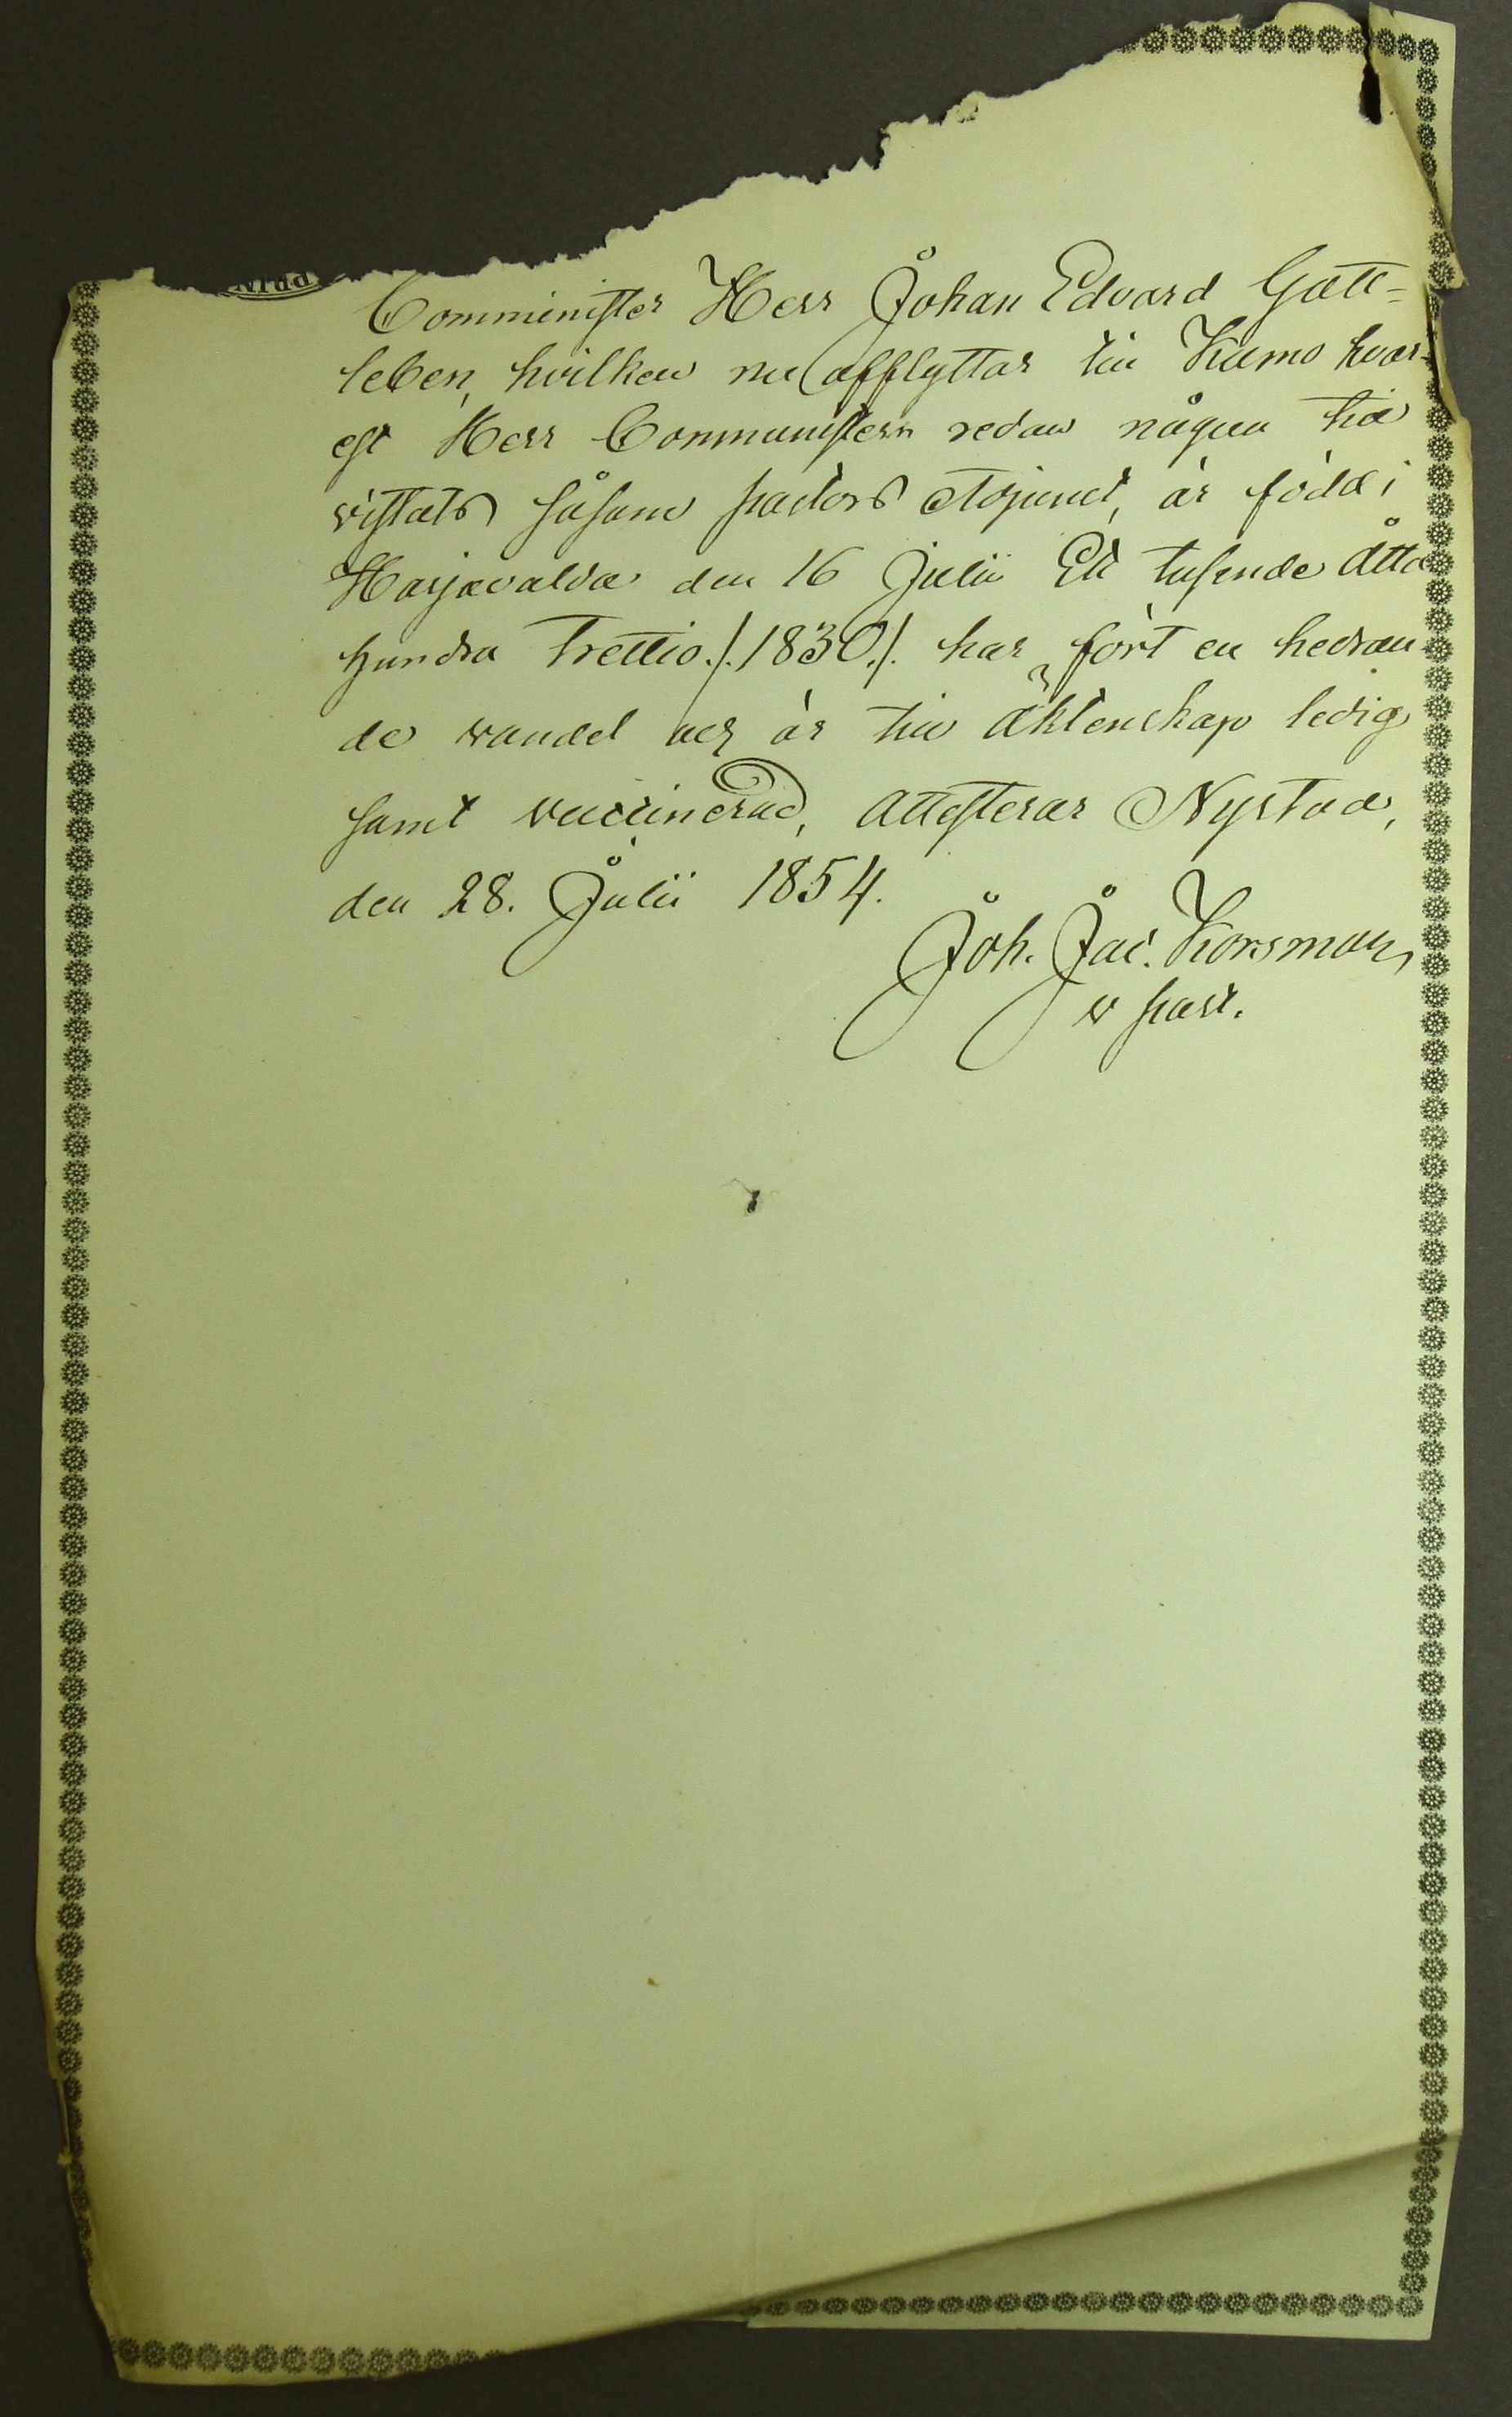 Comminister Herr Johan Edvard Gott-
leben, hvilken nu afflyttar till Kumo hvar-
est Herr Comministern redan någon tid
vistats såsom pastors adjunct, är född i
Harjavalda den 16 Julii Ett tusende Åtta
hundra Trettio ./. 1830 ./. har fört en hedran
de vandel och är till äktenskap ledig
samt vaccinerad, attesterar Nystad,
den 28. Julii 1854.
Joh. Jac. Korsman
v past.